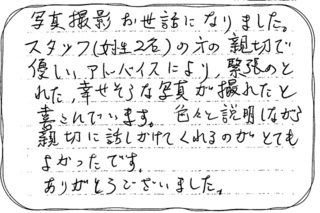 写真撮影お世話になりました。
スタッフ(女性2名)の方の親切で
優しいアドバイスにより、緊張のと
れた、幸せそうな写真が撮れたと
喜こんでいます。色々と説明しながら
親切に話しかけてくれるのがとても
よかったです。
ありがとうございました。